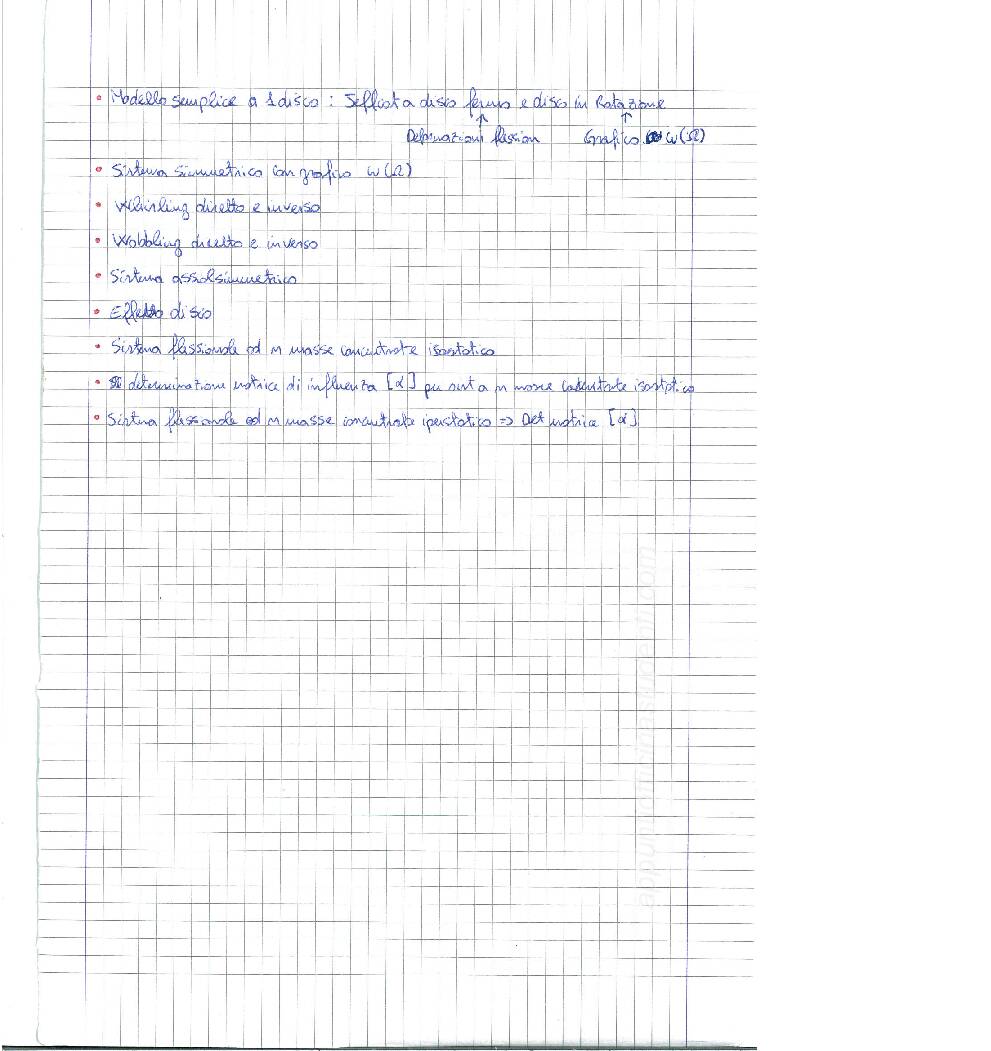 • Modello semplice a 1 disco : Jeffcot a disco fermo e disco in Rotazione
↑ ↑
Deformazioni flession Grafico ω(Ω)
• Sistema simmetrico con grafico ω(Ω)
• Whirling diretto e inverso
• Wobbling diretto e inverso
• Sistema assolsimmetrico
• Effetto disco
• Sistema flessionale ad n masse concentrate isostatico
• determinazione matrice di influenza [α] per sist a n masse concentrate isostatico
• Sistema flessionale ad n masse concentrate iperstatico => Det matrice [α]